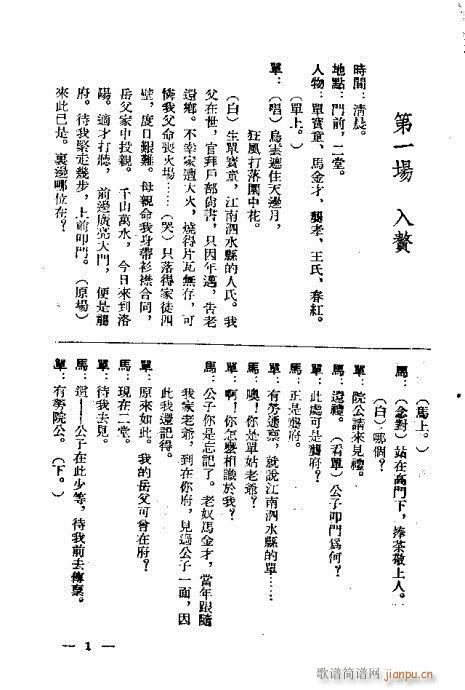 第一場　入贅
時間：清晨。
地點：門前，二堂。
人物：單寶童、馬金才，龔老，王氏，春紅。
（單上。）
單：（唱）烏雲遮住天邊月，
狂風打落園中花。
（白）生單寶童，江南泗水縣的人氏。我
父在世，官拜戶部尙書，只因年邁，吿老
還鄉。不幸家遭大火，燒得片瓦無存，可
憐我父命喪火場……（哭）只落得家徒四
壁，度日艱難。母親命我身帶衫襟合同，
岳父家中投親。千山萬水，今日來到洛
陽。適才打聽，前邊廣亮大門，便是龔
府。待我緊走幾步，上前叩門。（原場）
來此已是。裏邊哪位在？
（馬上。）
馬：（念對）站在高門下，捧茶敬上人。
（白）哪個？
單：院公請來見禮。
馬：還禮。（看單）公子叩門爲何？
單：此處可是龔府？
馬：正是龔府。
單：有勞通禀，就說江南泗水縣的單……
馬：噢！你是單姑老爺？
單：啊！你怎麽相識於我？
馬：公子你是忘記了。老奴馬金才，當年跟隨
我家老爺，到在你府，見過公子一面，因
此我還記得。
單：原來如此。我的岳父可曾在府？
馬：現在二堂。
單：待我去見。
馬：這——公子在此少等，待我前去傳禀。
單：有勞院公。（下。）
— 1 —
歌谱简谱网
jianpu.cn